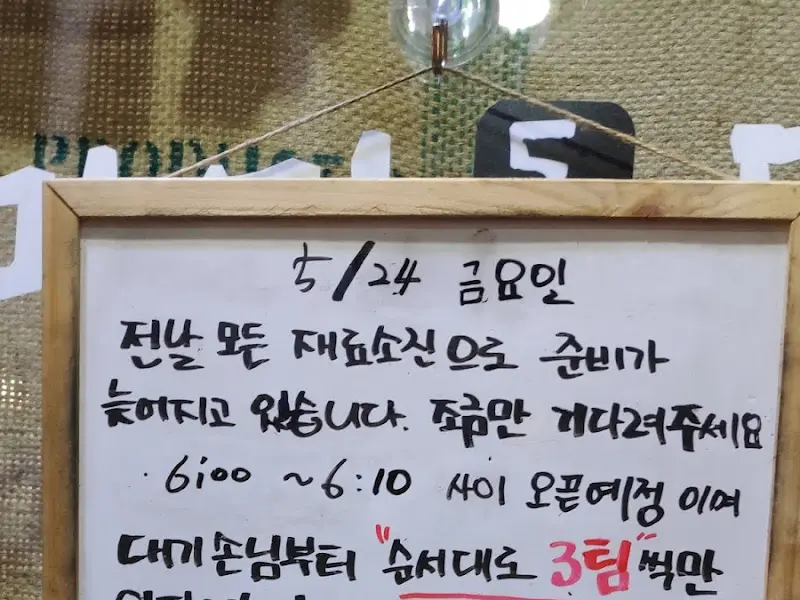 PRODUCT
5
5/24 금요일
전날 모든 재료소진으로 준비가
늦어지고 있습니다. 조금만 기다려주세요
· 6:00 ~ 6:10 사이 오픈예정 이며
대기 손님부터 "순서대로 3팀" 씩만